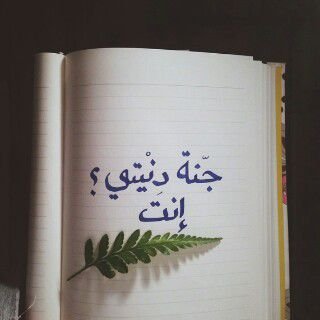 جَنة دِنْيتي ؟
إنتَ